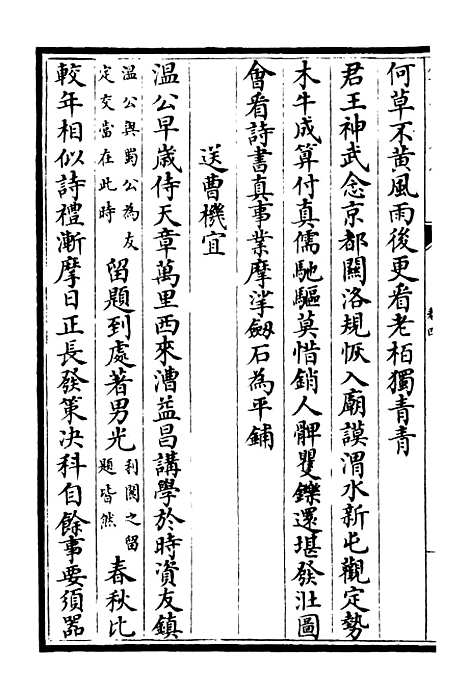 何草不黄風雨後更看老栢獨青青
君王神武念京都關洛規恢入廟謨渭水新屯觀定勢
木牛成算付真儒馳驅莫惜銷人髀矍鑠還堪發壯圖
會看詩書真事業摩挲劔石為平鋪
送曹機宜
温公早嵗侍天章萬里西來漕益昌講學於時資友鎮
温公與蜀公為友定交當在此時留題到處著男光利閬之留題皆然春秋比
較年相似詩禮漸摩日正長發策决科自餘事要須器
卷四